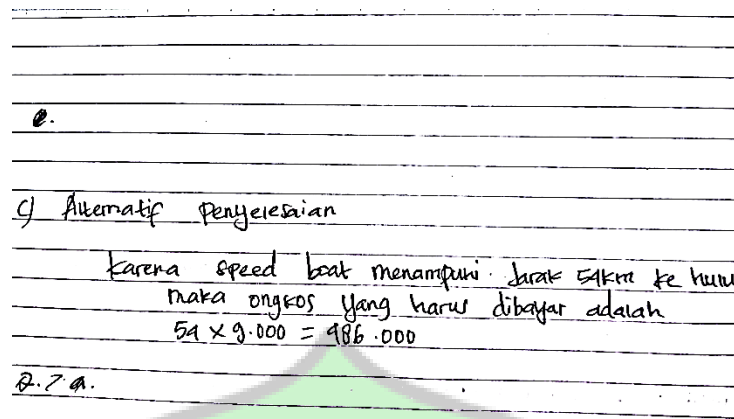 e.
c) Alternatif Penyelesaian
Karena speed boat menampuhi Jarak 54km ke hulu
maka ongkos yang harus dibayar adalah
54 x 9.000 = 486.000
2.7 a.